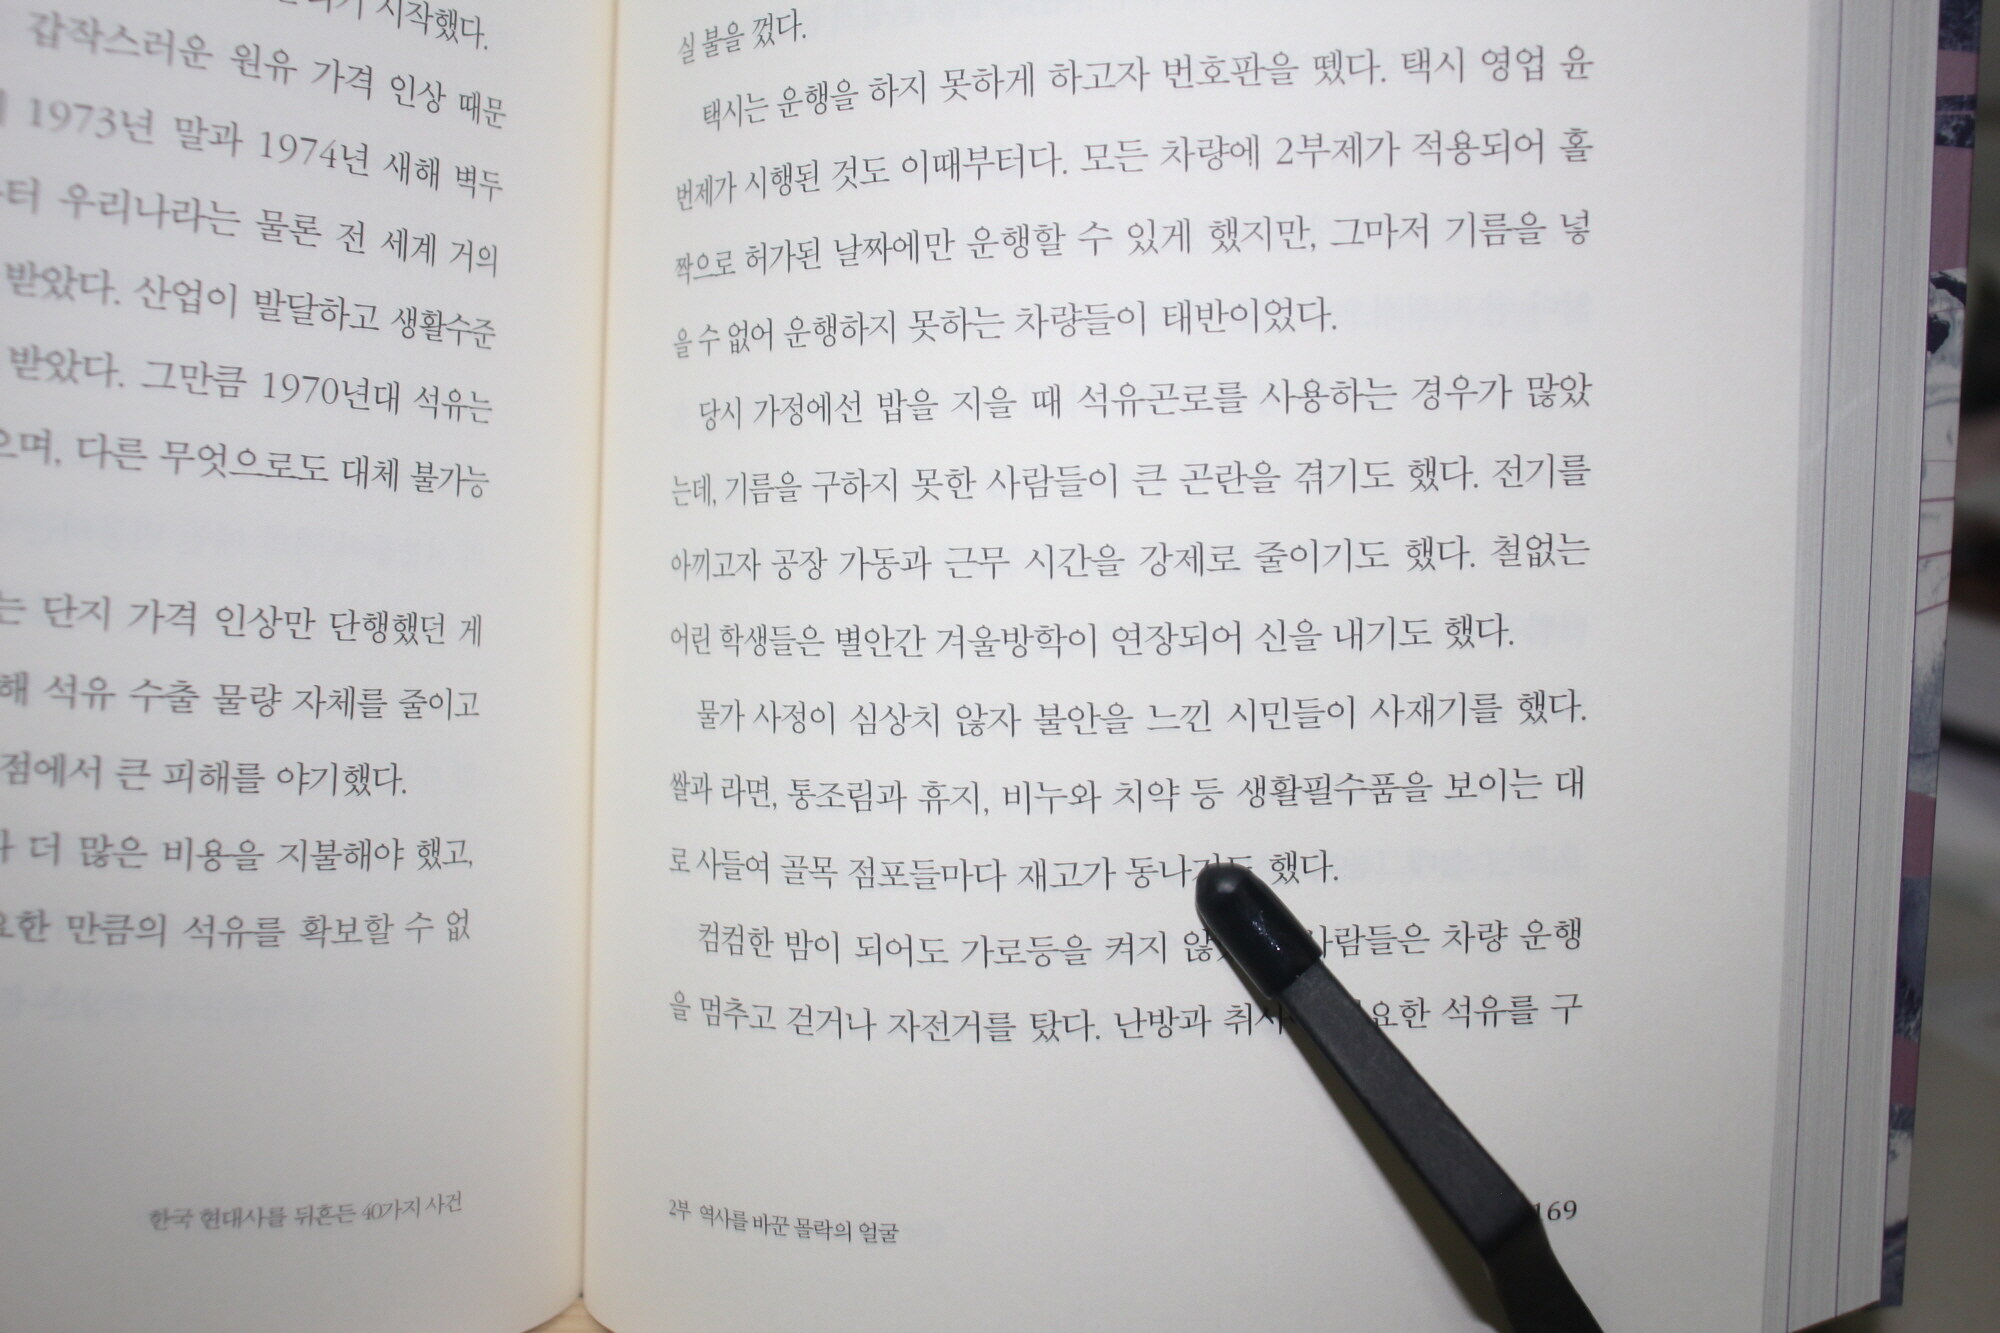 시작했다.
갑작스러운 원유 가격 인상 때문
1973년 말과 1974년 새해 벽두
우리나라는 물론 전 세계 거의
받았다. 산업이 발달하고 생활수준
받았다. 그만큼 1970년대 석유는
으며, 다른 무엇으로도 대체 불가능
는 단지 가격 인상만 단행했던 게
해 석유 수출 물량 자체를 줄이고
점에서 큰 피해를 야기했다.
더 많은 비용을 지불해야 했고,
요한 만큼의 석유를 확보할 수 없
한국 현대사를 뒤흔든 40가지 사건
실 불을 껐다.
택시는 운행을 하지 못하게 하고자 번호판을 뗐다. 택시 영업 윤
번제가 시행된 것도 이때부터다. 모든 차량에 2부제가 적용되어 홀
짝으로 허가된 날짜에만 운행할 수 있게 했지만, 그마저 기름을 넣
을 수 없어 운행하지 못하는 차량들이 태반이었다.
당시 가정에선 밥을 지을 때 석유곤로를 사용하는 경우가 많았
는데, 기름을 구하지 못한 사람들이 큰 곤란을 겪기도 했다. 전기를
아끼고자 공장 가동과 근무 시간을 강제로 줄이기도 했다. 철없는
어린 학생들은 별안간 겨울방학이 연장되어 신을 내기도 했다.
물가 사정이 심상치 않자 불안을 느낀 시민들이 사재기를 했다.
쌀과 라면, 통조림과 휴지, 비누와 치약 등 생활필수품을 보이는 대
로 사들여 골목 점포들마다 재고가 했다.
컴컴한 밤이 되어도 가로등을 켜지 사람들은 차량 운행
을 멈추고 걷거나 자전거를 탔다. 난방과 석유를 구
2부 역사를 바꾼 몰락의 얼굴
169